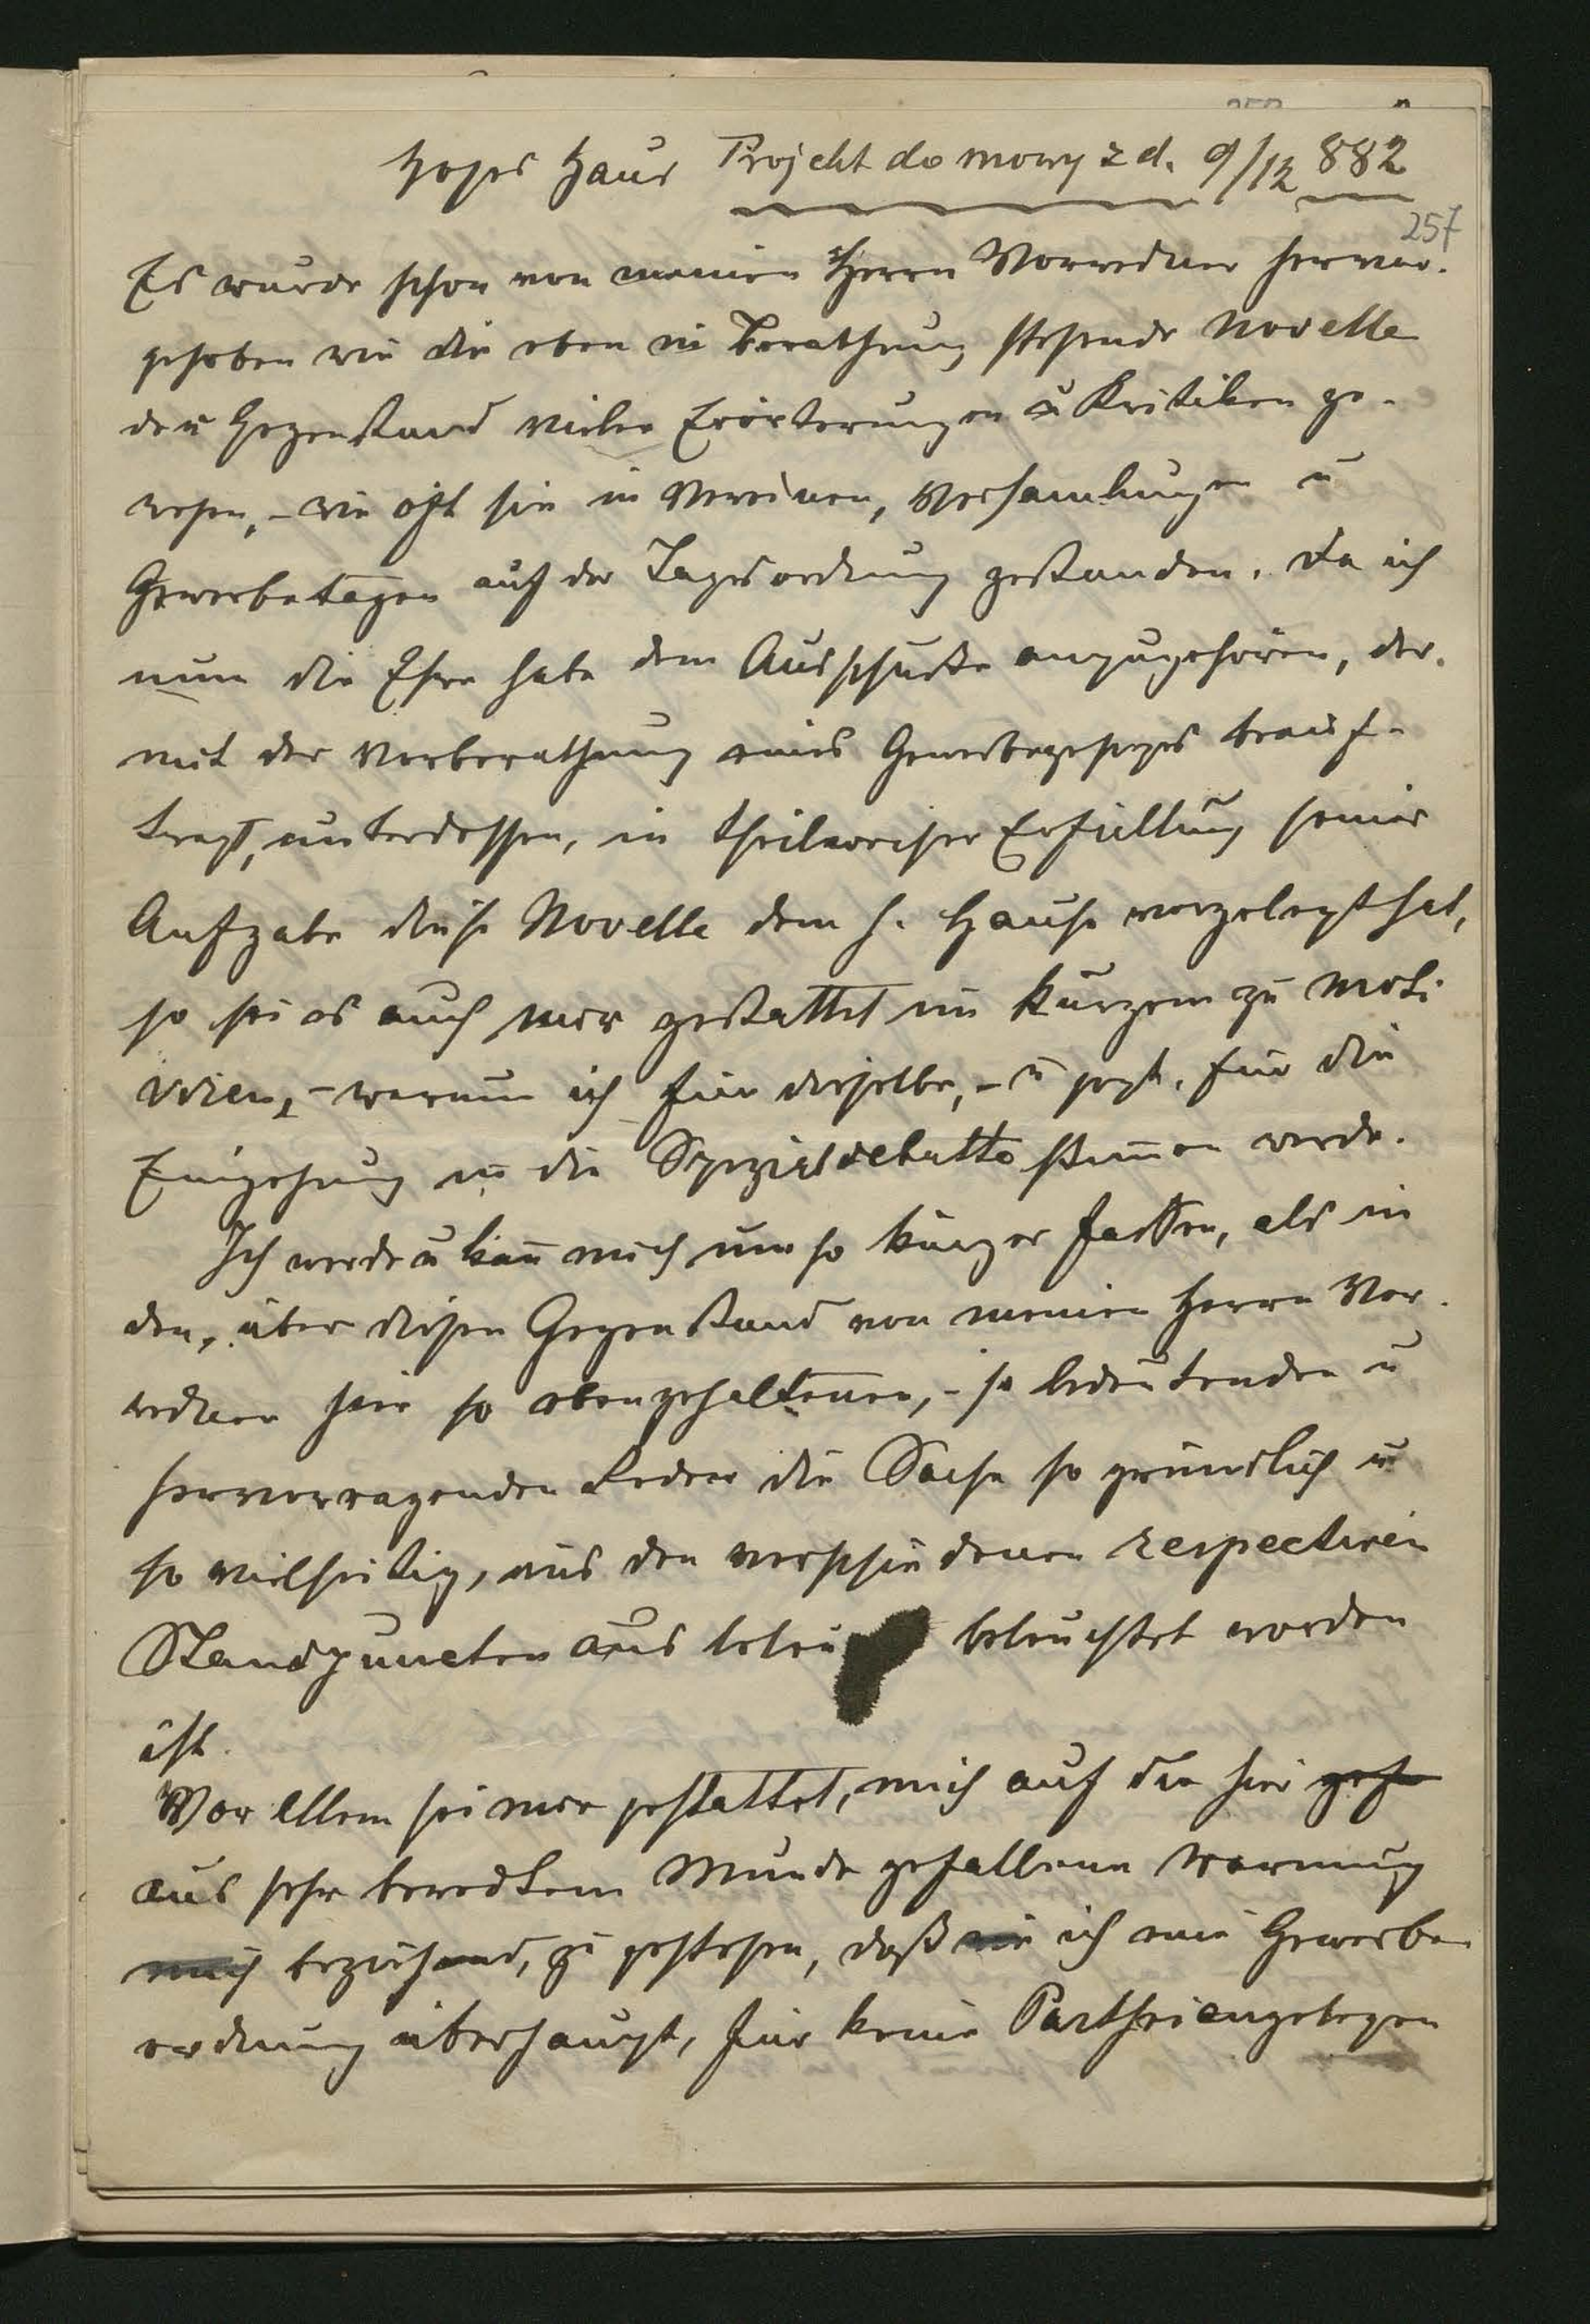 Hohes Haus Projekt do mowy z d. 9/12 882
257
Es wurde schon von meinen Herrn Vorredner hervor-
gehoben wie die eben in Berathung stehende Novelle
den Gegenstand vieler Erörterungen u Kritiken ge-
wesen, - wie oft sie in Vereinen, Versamlungen u
Gewerbetagen auf der Tagesordnung gestanden. Da ich
nun die Ehre habe dem Ausschuße anzugehören, der
mit der Vorberathung eines Gewerbegesetzes beauf-
tragt, unterdessen, in theilweiser Erfüllung seiner
Aufgabe diese Novelle dem h. Hause vorgelegt hat,
so sei es auch mir gestattet in kurzem zu moti
viren, - warum ich für dieselbe, - u jezt. für die
Eingehung in die Spezialdebatte stim̅en werde.
Ich werde u kan̅ mich um so kürzer fassen, als in
den, über diesen Gegenstand von meinen Herrn Vor-
rednern hier so eben gehaltenen, - so bedeutenden u
hervorragenden Reden die Sache so gründlich u
so vielseitig, aus den verschiedenen respectiven
Standpuncten aus beleu beleuchtet worden
ist.
Vor allem sei mir gestattet, mich auf die hier geh
aus sehr beredtem Munde gefallene Warnung
mich beziehend, zu gestehen, daß ich eine Gewerbe
ordnung überhaupt, für keine Partheiangelegen